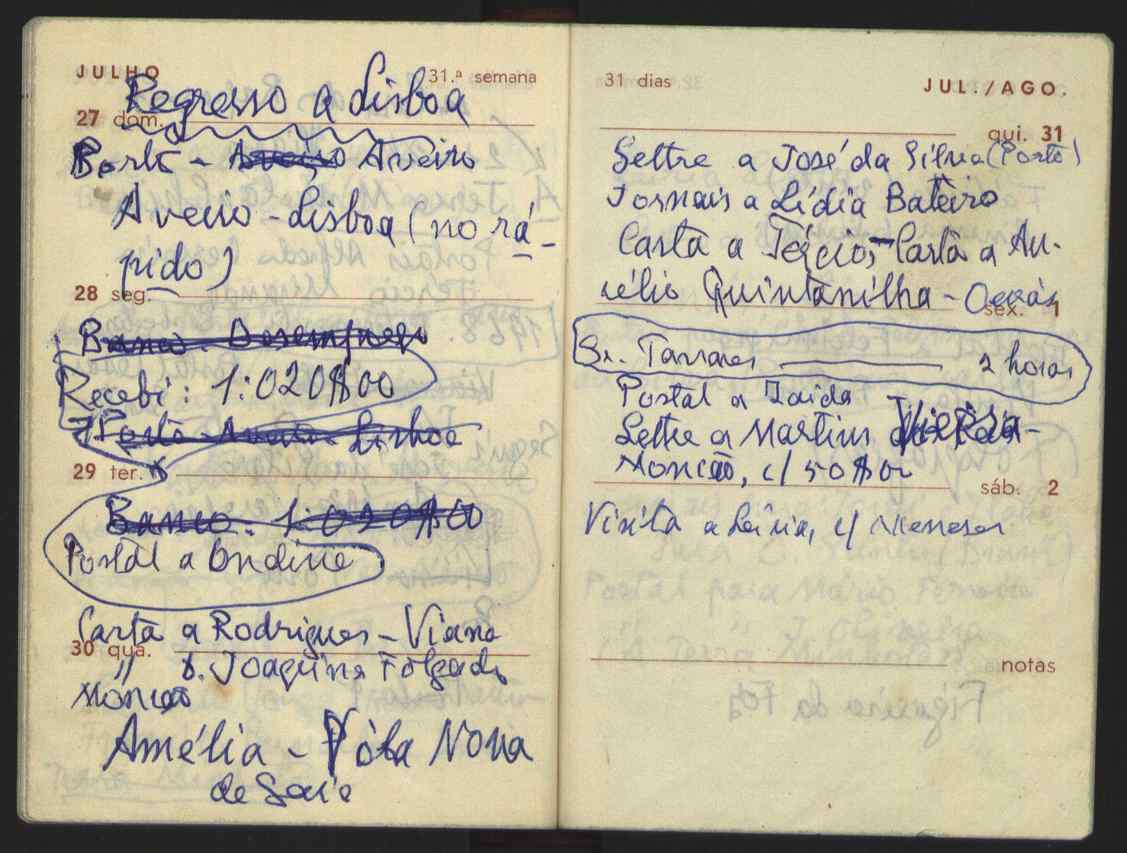 JULHO
31.ª semana
Regresso a Lisboa
27 dom.
Porto - Aveiro Aveiro
Aveiro - Lisboa (no rá-
pido)
28 seg.
Banco - Desemprego
Recebi: 1:020$00
Porto - Aveiro - Lisboa
29 ter.
Banco - 1:020$00
Postal a Ondine
Carta a Rodrigues - Viana
30 qua.
" D. Joaquina Folgado
Monção
Amélia - Vila Nova
de Gaia
31 dias
JUL./AGO.
qui. 31
Settre a José da Silva (Porto)
Jornais a Lídia Bateiro
Carta a Tércio, Carta a Au-
rélio Quintanilha -
sex. 1
Sr. Tavares 2 horas
Postal a Zaida
Settre a Martins
Monção, c/ 50$00
sáb. 2
Visita a Leiria, c/ Meneses
notas